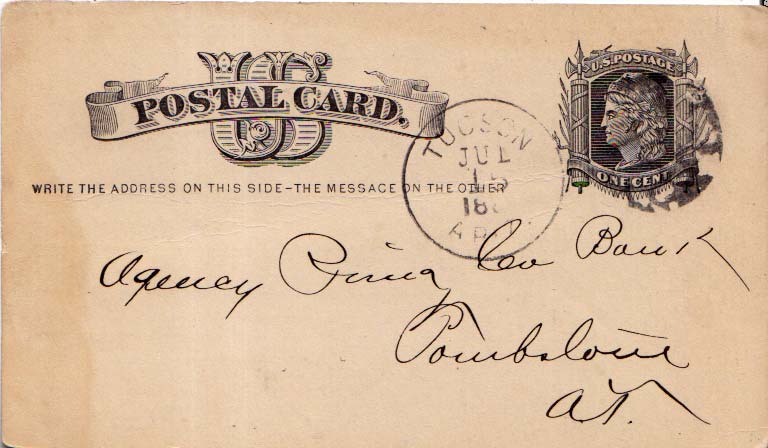 US
POSTAL CARD.
U.S. POSTAGE
ONE CENT
WRITE THE ADDRESS ON THIS SIDE-THE MESSAGE ON THE OTHER
TUCSON
JUL
15
188
ARI
Agency Pima Co Bank
Tombstone
A.T.